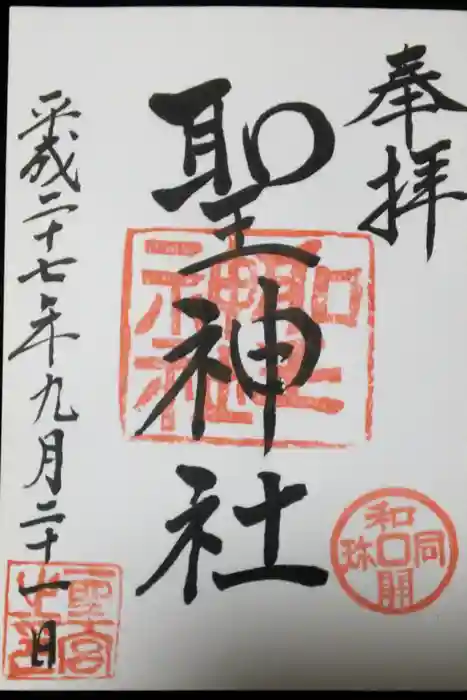 奉拝
聖神社
平成二十七年九月二十一日
聖神社
和同開珎